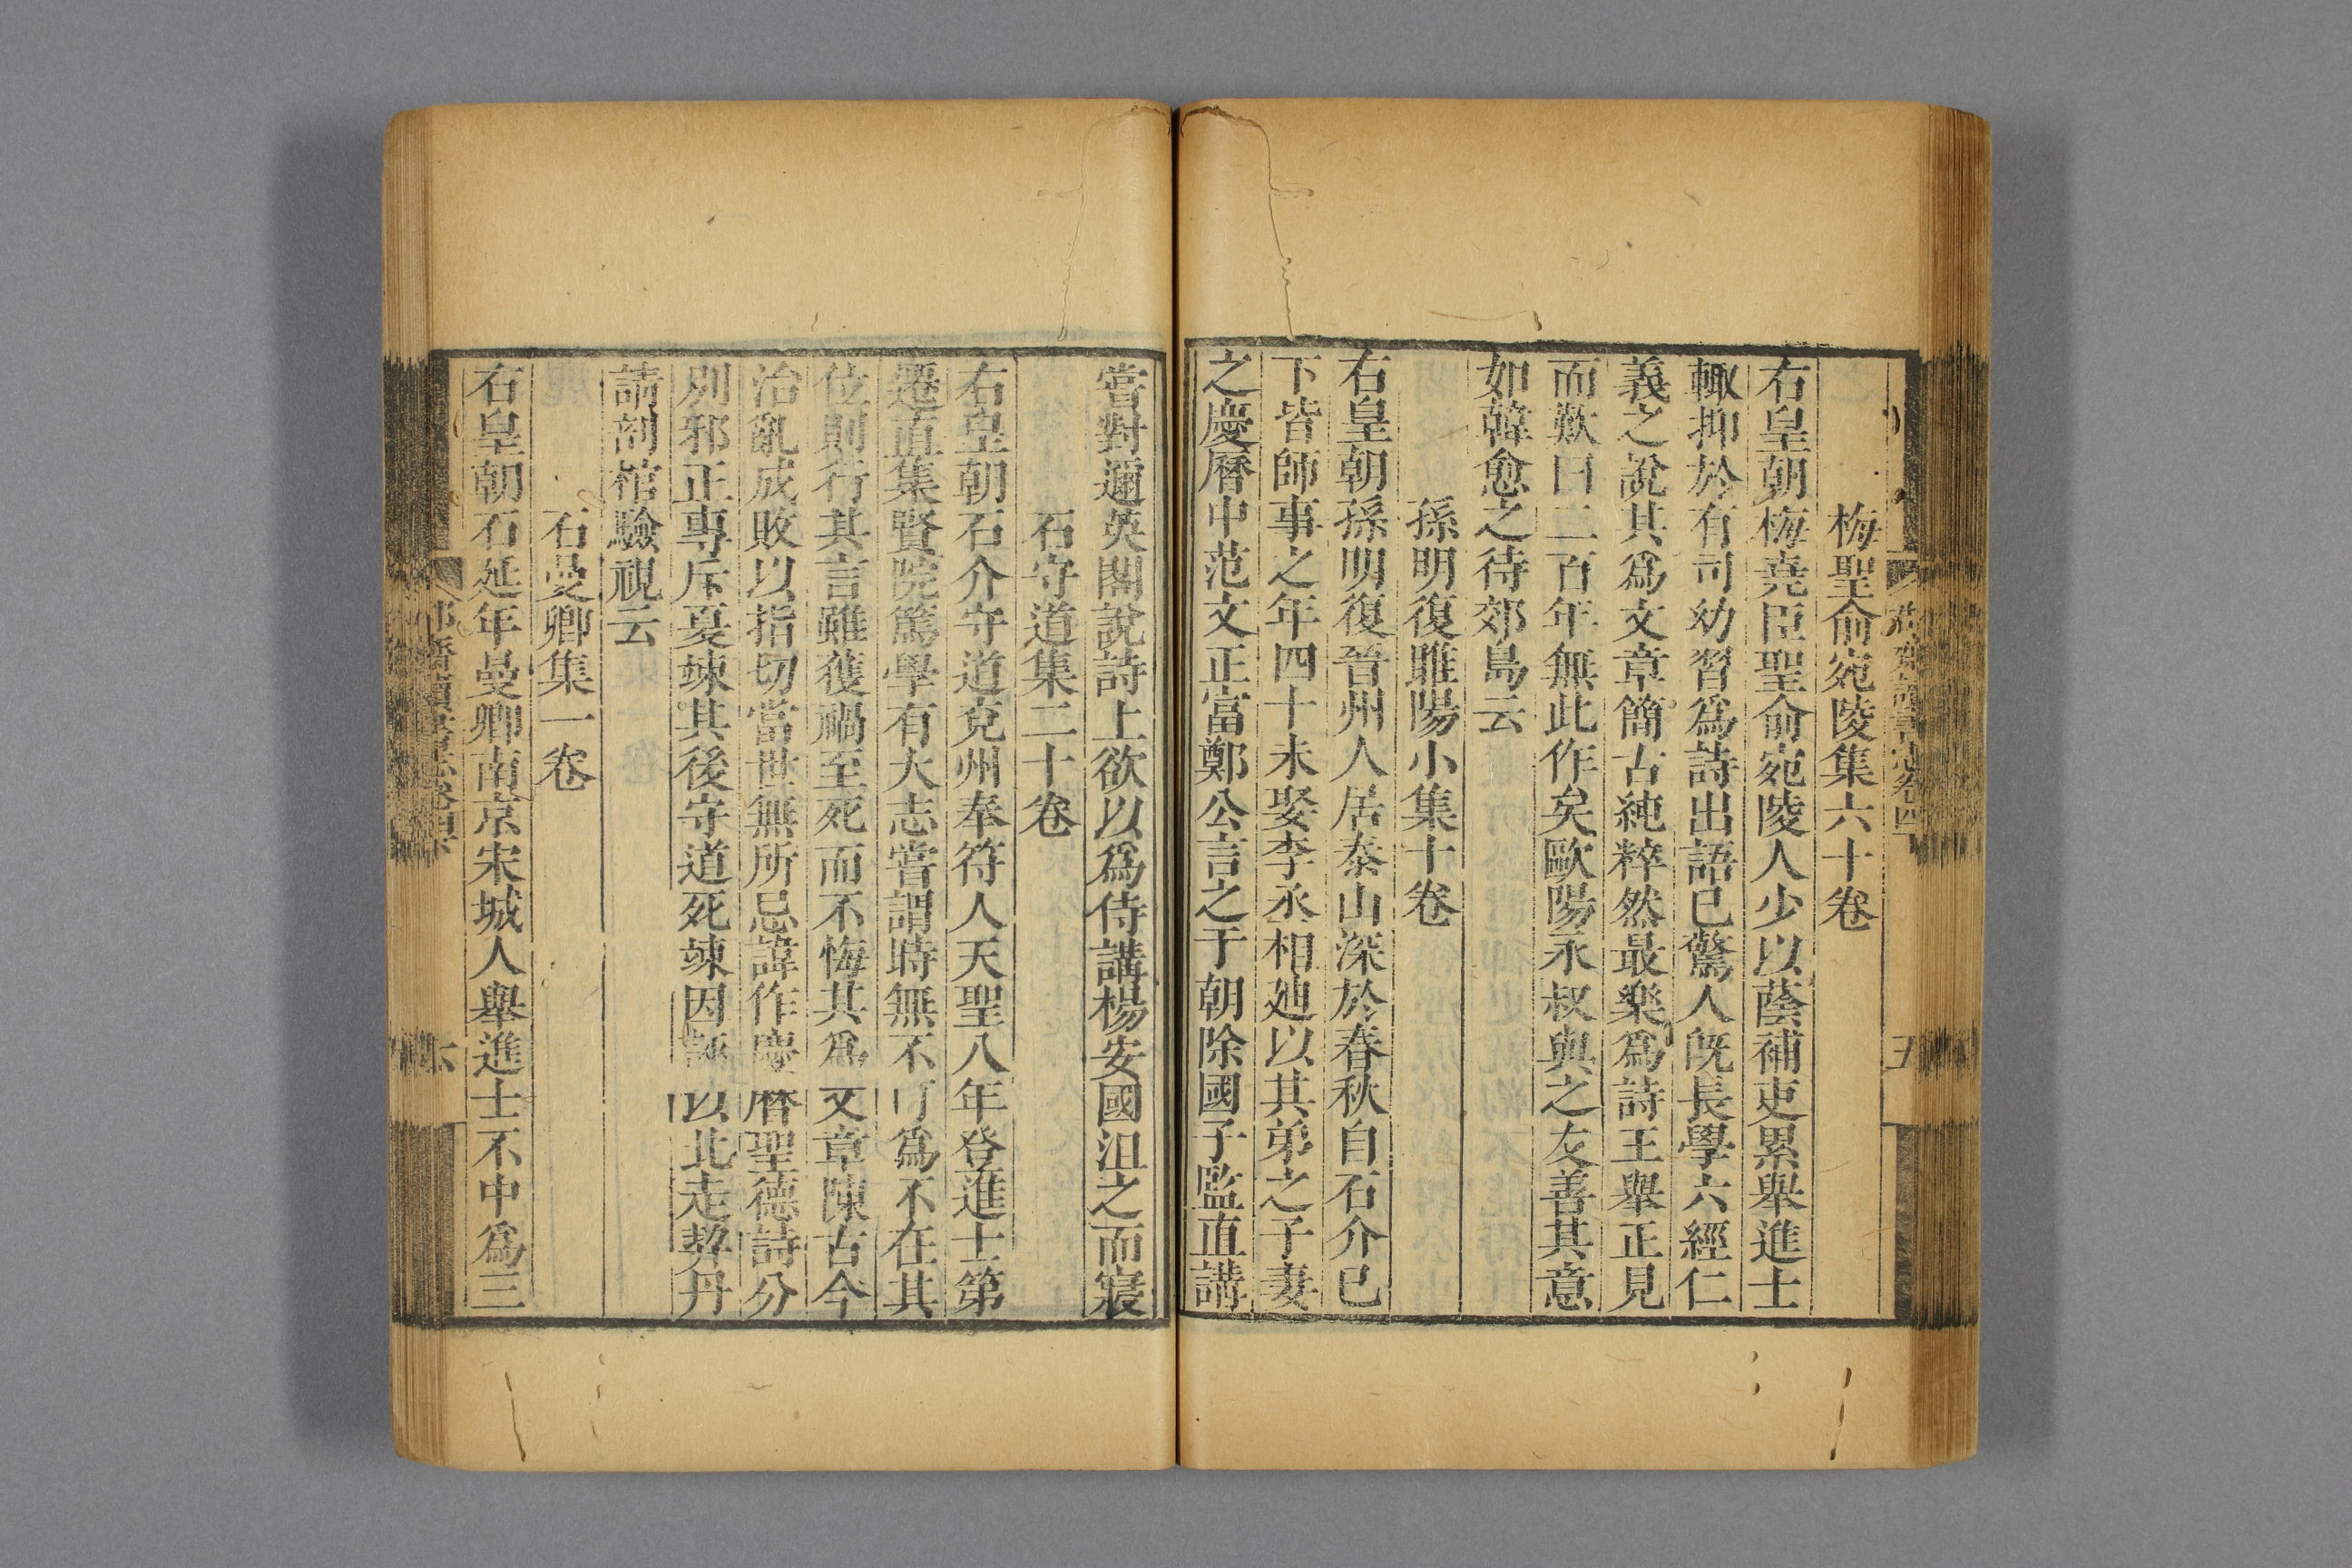 梅聖俞宛陵集六十卷
右皇朝梅堯臣聖俞宛陵人少以蔭補吏累舉進士
輙抑於有司幼習爲詩出語已驚人旣長學六經仁
義之說其爲文章簡古純粹然最樂爲詩王舉正見
而歎曰二百年無此作矣歐陽永叔與之友善其意
如韓愈之待郊島云
孫明復睢陽小集十卷
右皇朝孫明復晉州人居泰山深於春秋自石介已
下皆師事之年四十未娶李丞相廸以其弟之子妻
之慶曆中范文正富鄭公言之于朝除國子監直講
嘗對邇英閣說詩上欲以爲侍講楊安國沮之而寢
石守道集二十卷
右皇朝石介守道兗州奉符人天聖八年登進士第
遷直集賢院篤學有大志嘗謂時無不可爲不在其
位則行其言雖獲禍至死而不悔其爲文章陳古今
治亂成敗以指切當世無所忌諱作慶曆聖德詩分
別邪正專斥夏竦其後守道死竦因誣以北走契丹
請剖棺驗視云
石曼卿集一卷
右皇朝石延年曼卿南京宋城人舉進士不中爲三